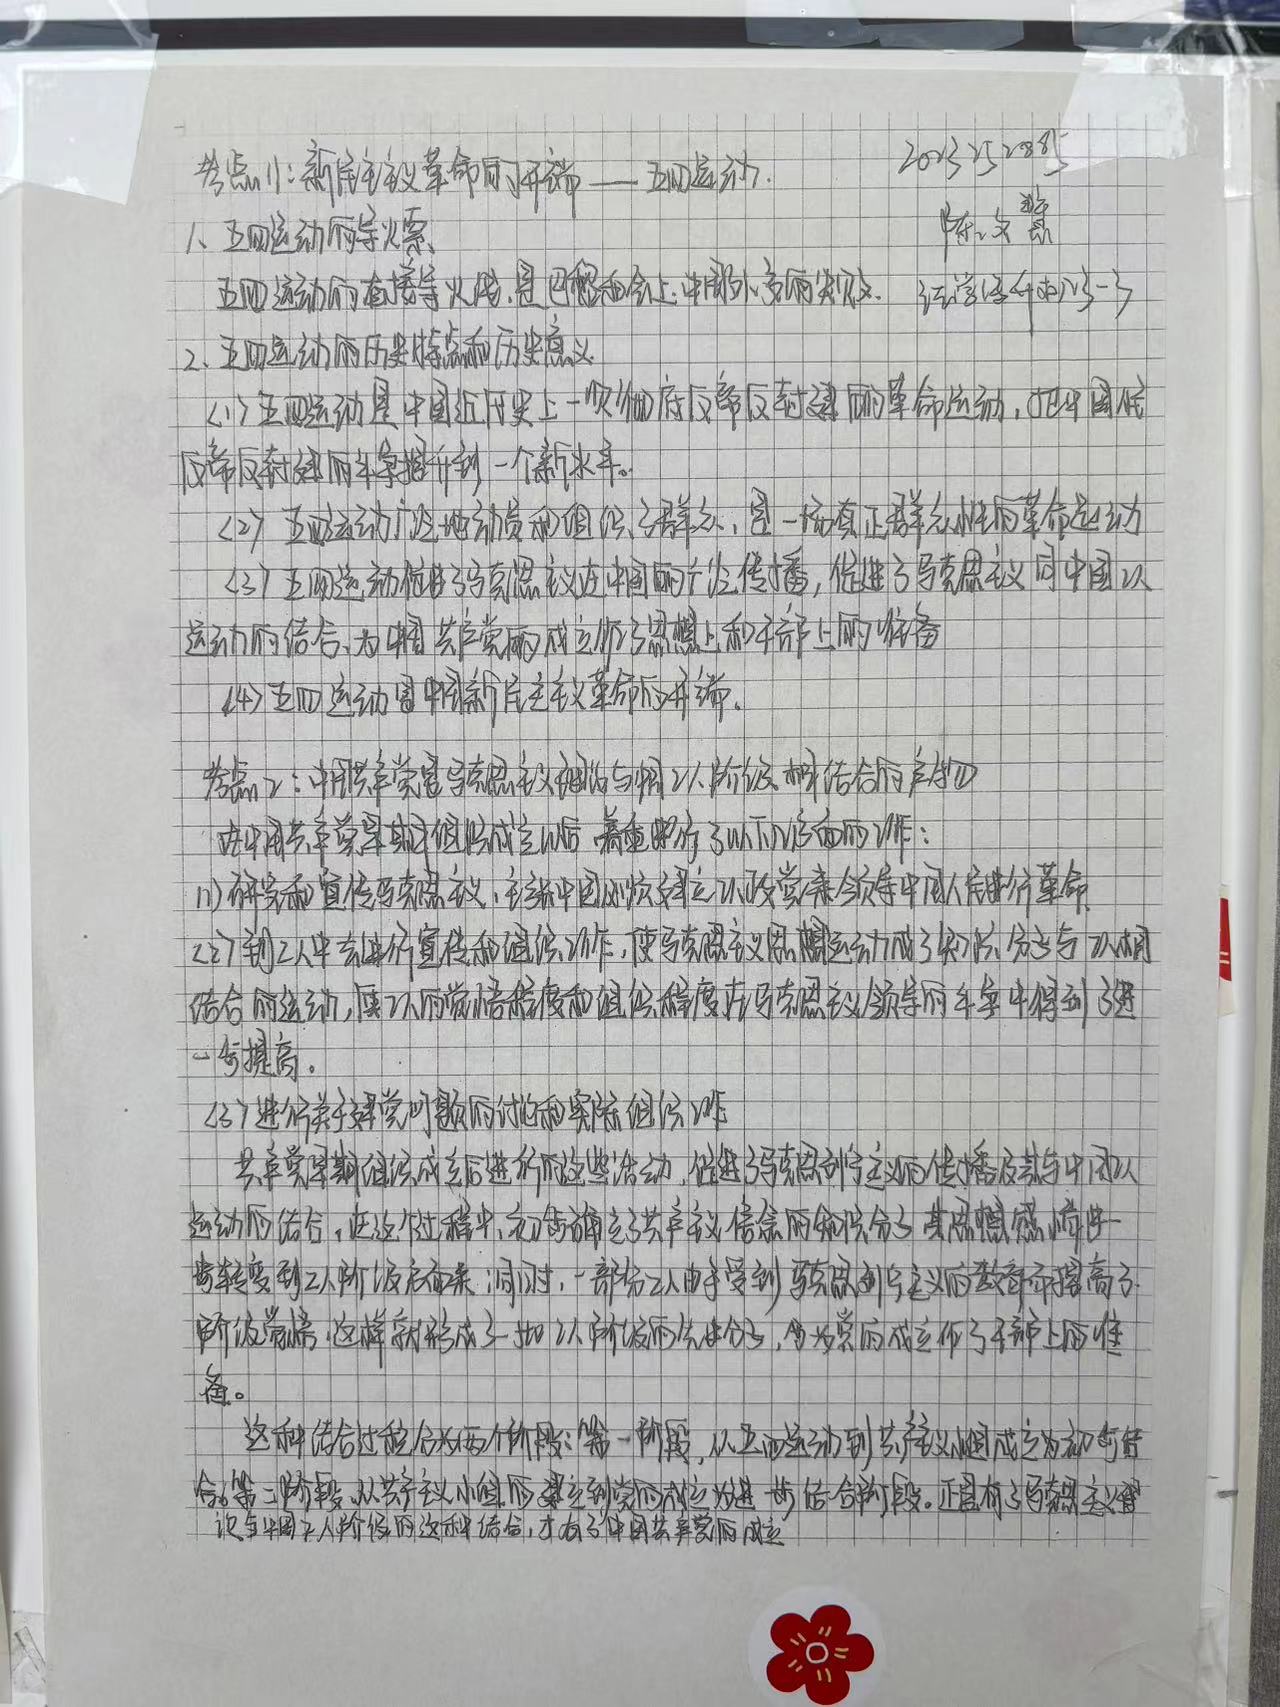 考点1：新民主主义革命的开端——五四运动.
2023252885
1、五四运动的导火索、
陈文
五四运动的直接导火线，是巴黎和会上中国外交的失败.
2、五四运动的历史特点和历史意义
(1) 五四运动是中国近代史上一次彻底反帝反封建的革命运动，把中国人民
反帝反封建的斗争提升到一个新水平。
(2) 五四运动广泛地动员和组织了群众，是一场真正群众性的革命运动
(3) 五四运动促进了马克思主义在中国的广泛传播，促进了马克思主义同中国工人
运动的结合、为中国共产党的成立作了思想上和干部上的准备
(4) 五四运动是中国新民主主义革命的开端.
考点2：中国共产党是马克思主义理论与中国工人阶级相结合的产物
在中国共产党早期组织成立以后 着重进行了以下几方面的工作：
(1) 研究和宣传马克思主义，主张中国必须建立工人政党来领导中国人民进行革命
(2) 到工人中去进行宣传和组织工作，使马克思主义思想运动成了知识分子与工人相
结合的运动，使工人的觉悟程度和组织程度在马克思主义领导的斗争中得到了进
一步提高。
(3) 进行关于建党问题的讨论和实际组织工作
共产党早期组织成立后进行的这些活动，促进了马克思列宁主义的传播及其与中国工人
运动的结合，在这个过程中，初步确立了共产主义信念的知识分子 其思想感情进一
步转变到工人阶级方面来；同时，一部分工人由于受到马克思列宁主义的教育而提高了
阶级觉悟，这样就形成了一批工人阶级的先进分子，为党的成立作了干部上的准
备。
这种结合过程分为两个阶段：第一阶段，从五四运动到共产主义小组成立为初步结
合。第二阶段、从共产主义小组的建立到党的成立为进一步结合阶段。正是有了马克思主义
与中国工人阶级的这种结合，才有了中国共产党的成立